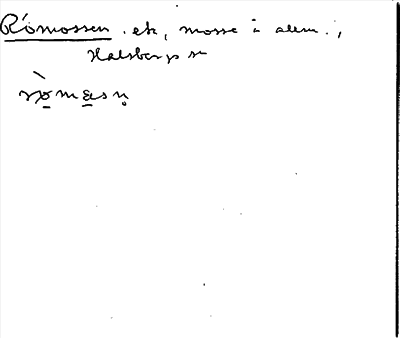 Römossen. ek, mosse å allm.,
Halsbergs sn
rò̱ma̱sn̥